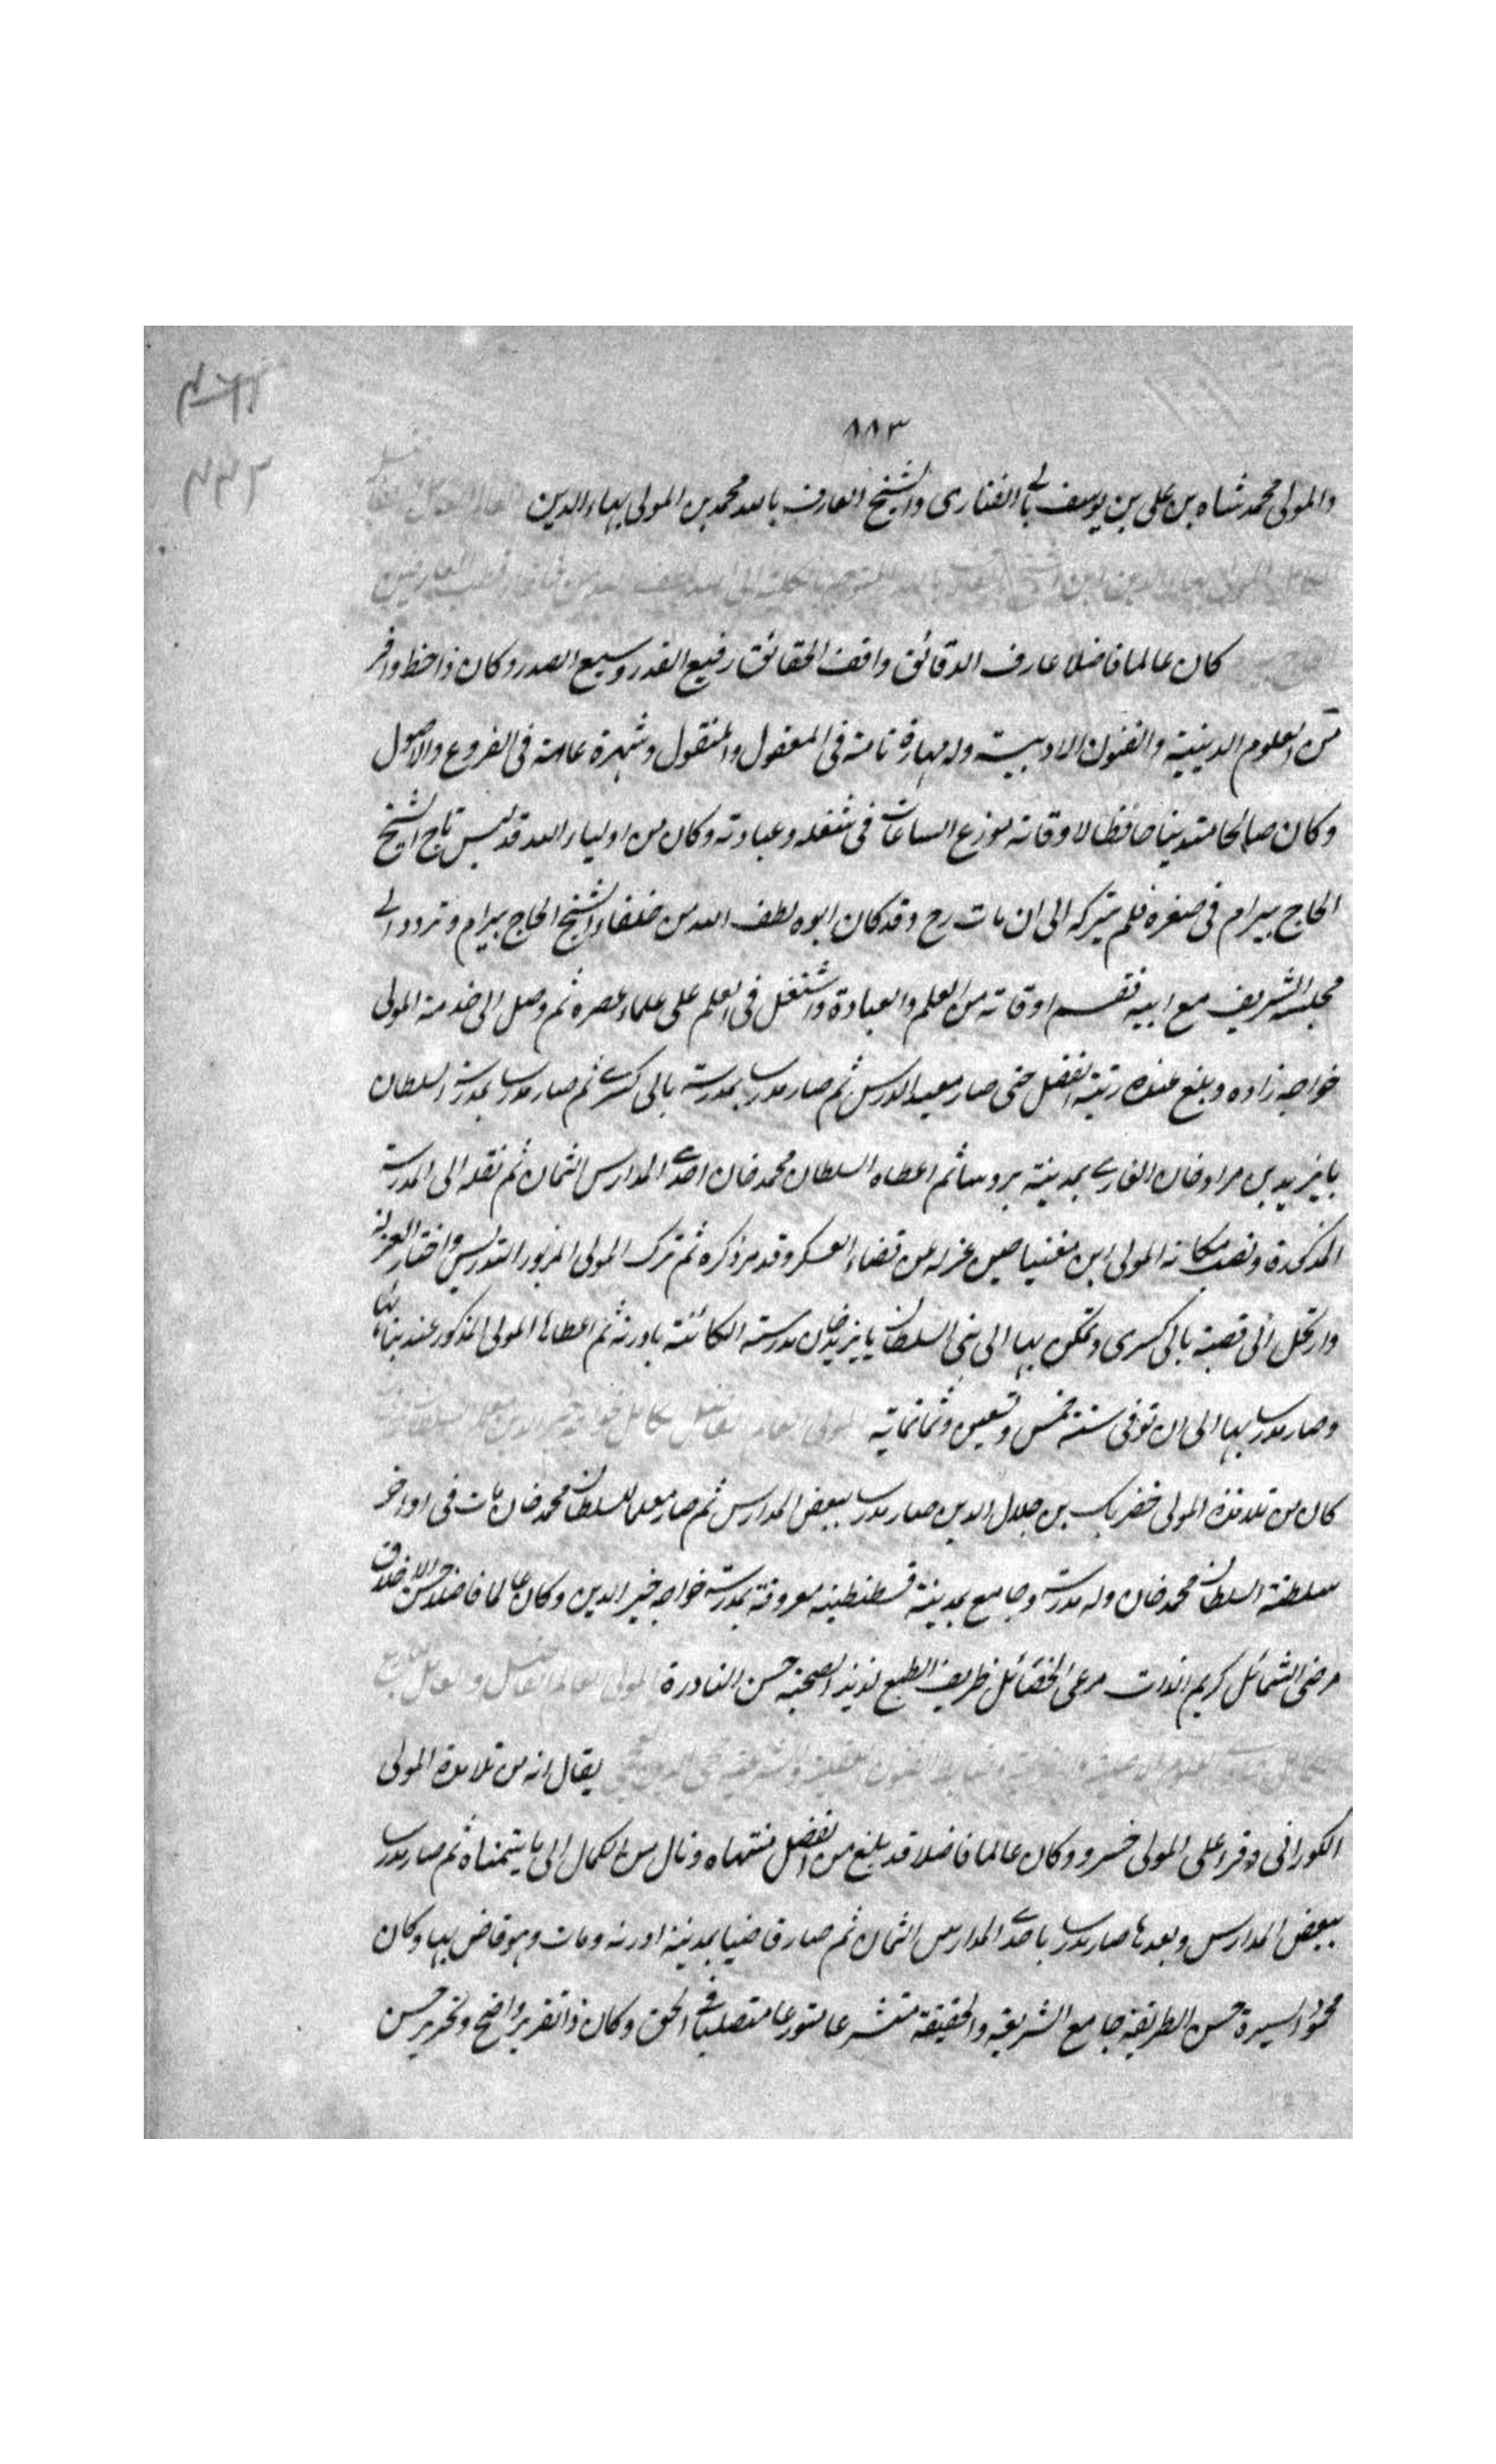 ٨٨٣
والمولى محمد شاه بن على بن يوسف بالى الفنارى والشيخ العارف بالله محمد بن المولى بهاء الدين
كان عالما فاضلا عارف الدقائق واقف الحقائق رفيع القدر وسيع الصدر وكان ذا حظ وافر
من العلوم الدينية والفنون الادبية وله مهارة تامة فى المعقول والمنقول وشهرة عامة فى الفروع والاصول
وكان صالحا متدينا حافظا لاوقاته موزع الساعات فى شغله وعبادته وكان من اولياء الله قد لبس تاج الشيخ
الحاج بيرام فى صغره فلم يتركه الى ان مات رح وقد كان ابوه لطف الله من خلفاء الشيخ الحاج بيرام وتردد الى
مجلسه الشريف مع ابيه فقسم اوقاته من العلم والعبادة واشتغل فى العلم على علماء عصره ثم وصل الى خدمة المولى
خواجه زاده وبلغ عنده رتبة الفضل حتى صار معيد الدرس ثم صار مدرسا بمدرسة بالى كسرى ثم صار مدرسا بمدرسة السلطان
بايزيد بن مراد خان الغازى بمدينة بروسا ثم اعطاه السلطان محمد خان احدى المدارس الثمان ثم نقله الى المدرسة
المذكورة ونصب مكانه المولى ابن مغنيسا حين عزله عن قضاء العسكر وقد مر ذكره ثم ترك المولى المزبور التدريس واختار العزلة
وارتحل الى قصبة بالى كسرى وتمكن بها الى بنى السلطان بايزيد خان مدرسته الكائنة بادرنه ثم اعطاها المولى المذكور عند بنائها
وصار مدرسا بها الى ان توفى سنة خمس وتسعين وثمانمائة
كان من تلامذة المولى خضر بك بن جلال الدين صار مدرسا ببعض المدارس ثم صار معلما للسلطان محمد خان مات فى اواخر
سلطنة السلطان محمد خان وله مدرسة وجامع بمدينة قسطنطينيه معروفة بمدرسة خواجه خير الدين وكان عالما فاضلا حسن الاخلاق
مرضى الشمائل كريم الذات مرعى الخصائل ظريف الطبع لذيذ الصحبة حسن النادرة
يقال انه من تلامذة المولى
الكورانى وقرأ على المولى خسرو وكان عالما فاضلا قد بلغ من الفضل منتهاه ونال من الكمال الى ما يتمناه ثم صار مدرسا
ببعض المدارس وبعدها صار مدرسا باحدى المدارس الثمان ثم صار قاضيا بمدينة ادرنه ومات وهو قاض بها وكان
محمود السيرة حسن الطريقة جامع الشريعة والحقيقة متشرعا متورعا متصلبا فى الحق وكان ذا تقرير واضح وتحرير حسن